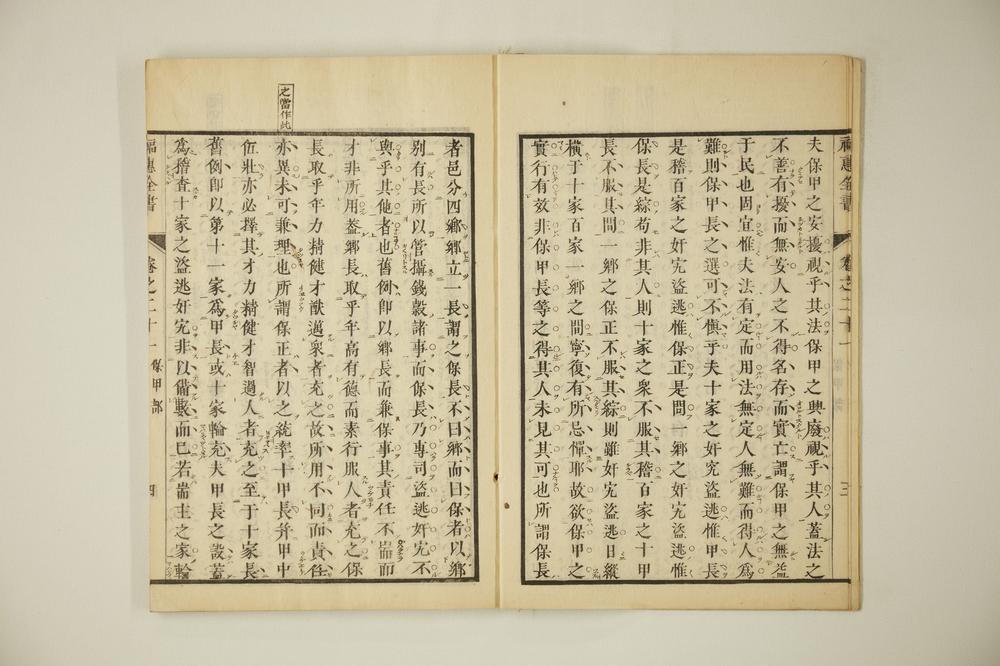 夫保甲之安擾視乎其法保甲之興廢視乎其人蓋法之
不善有擾而無安人之不得名存而實亡謂保甲之無益
于民也固宜惟夫法有定而用法無定人無難而得人爲
難則保甲長之選可不愼乎夫十家之奸宄盜逃惟甲長
是稽百家之奸宄盜逃惟保正是問一鄉之奸宄盜逃惟
保長是綜苟非其人則十家之衆不服其稽百家之十甲
長不服其問一鄉之保正不服其綜則雖奸宄盜逃日縱
橫于十家百家一鄉之間寧復有所忌憚耶故欲保甲之
實行有效非保甲長等之得其人未見其可也所謂保長
福惠全書 卷之二十一 三
者邑分四鄉鄉立一長謂之保長不曰鄉而曰保者以鄉
别有長所以管攝錢穀諸事而保長乃專司盜逃奸宄不
與乎其他者也舊例卽以鄉長而兼保事其責任不耑而
才非所用葢鄉長取乎年高有德而素行服人者充之保
長取乎年力精健才猷邁衆者充之故所用不同而責任
亦異未可兼理也所謂保正者以之統率十甲長并甲中
之當作此
伍壯亦必擇其才力精健才智過人者充之至于十家長
舊例卽以第十一家爲甲長或十家輪充夫甲長之設蓋
爲稽查十家之盜逃奸宄非以備數而已若耑主之家輪
福惠全書 卷之二十一 保甲部 四